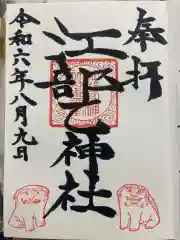 奉拝
江部乙神社
令和六年八月九日